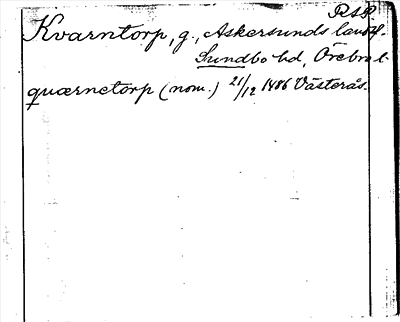 R.S.P.
Kvarntorp, g., Askersunds landsf.
Sundbo hd, Örebro l.
quærnetorp (nom.) 21/12 1486 Västerås.